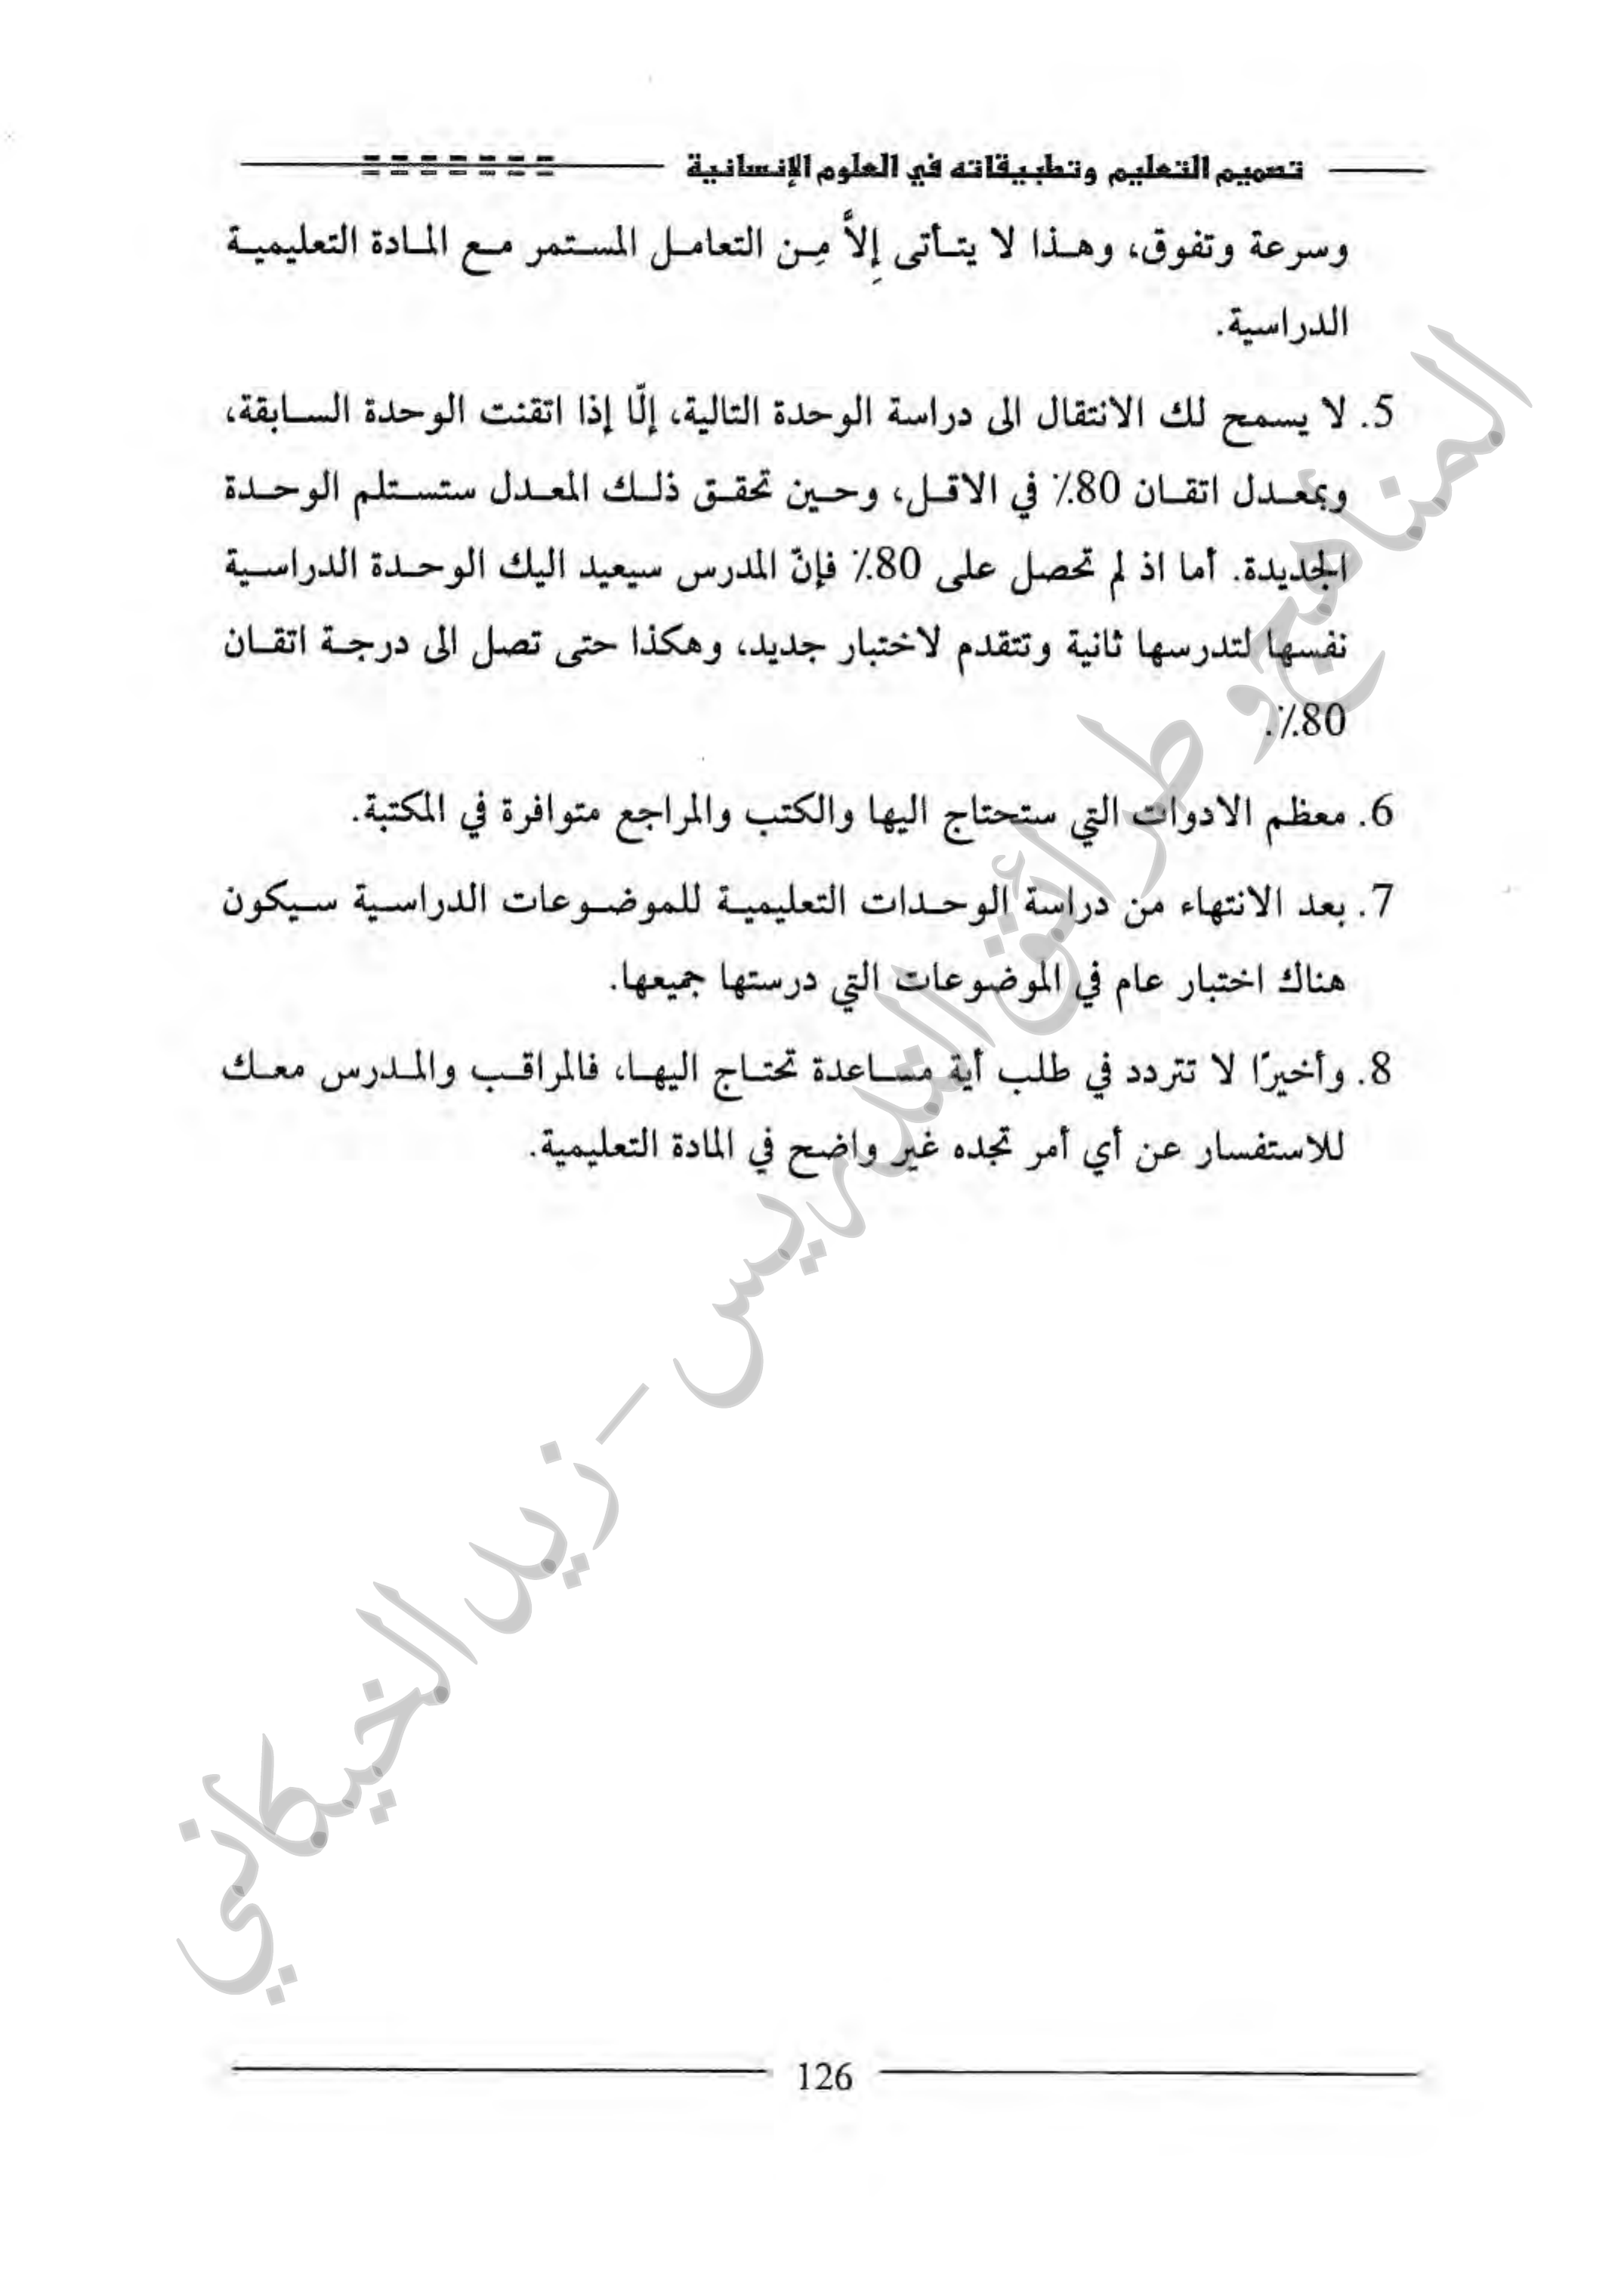 تصميم التعليم وتطبيقاته في العلوم الإنسانية
وسرعة وتفوق، وهذا لا يتأتى إِلاَّ مِن التعامل المستمر مع المادة التعليمية
الدراسية.
5. لا يسمح لك الانتقال الى دراسة الوحدة التالية، إلّا إذا اتقنت الوحدة السابقة،
وبمعدل اتقان 80٪ في الاقل، وحين تحقق ذلك المعدل ستستلم الوحدة
الجديدة. أما اذ لم تحصل على 80٪ فإنّ المدرس سيعيد اليك الوحدة الدراسية
نفسها لتدرسها ثانية وتتقدم لاختبار جديد، وهكذا حتى تصل الى درجة اتقان
80٪.
6. معظم الادوات التي ستحتاج اليها والكتب والمراجع متوافرة في المكتبة.
7. بعد الانتهاء من دراسة الوحدات التعليمية للموضوعات الدراسية سيكون
هناك اختبار عام في الموضوعات التي درستها جميعها.
8. وأخيرًا لا تتردد في طلب أية مساعدة تحتاج اليها، فالمراقب والمدرس معك
للاستفسار عن أي أمر تجده غير واضح في المادة التعليمية.
المناهج وطرائق التدريس - زيد الخيكاني
126